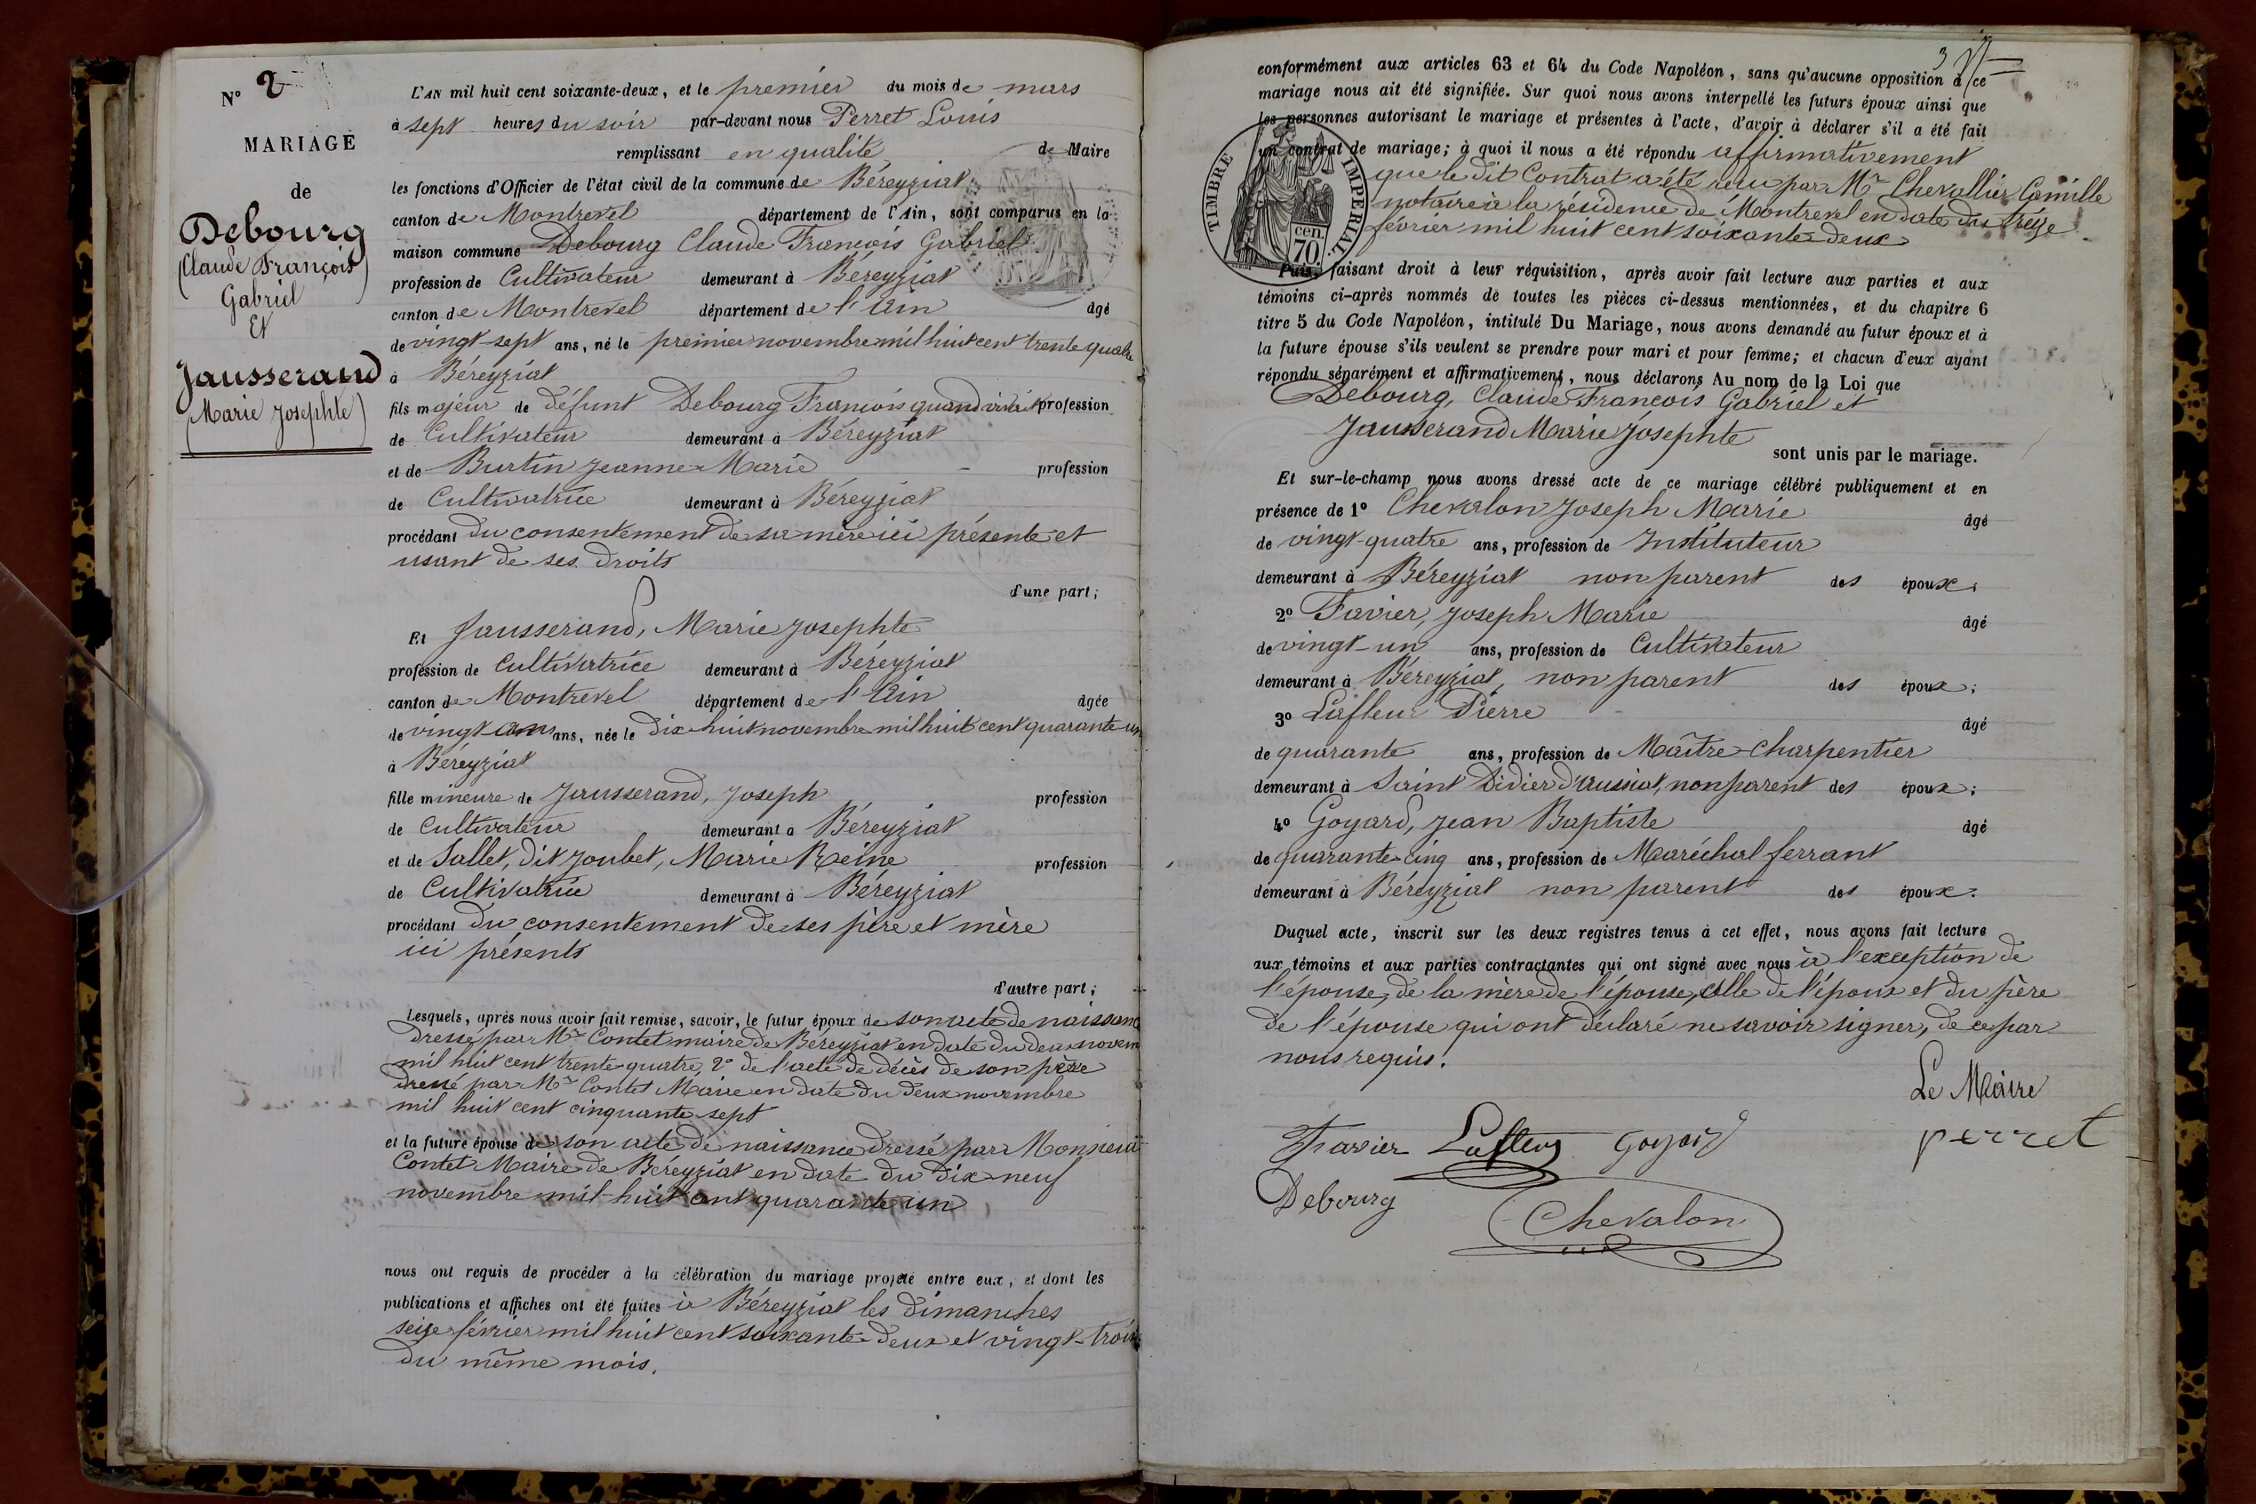 N° 2
MARIAGE
de
Debourg
(Claude François
Gabriel
Et
Jausserand
(Marie Josephte)
L'AN mil huit cent soixante-deux, et le premier du mois de mars
à sept heures du soir par-devant nous Perret Louis
remplissant en qualité de Maire
les fonctions d'Officier de l'état civil de la commune de Béreyziat
canton de Montrevel département de l'Ain, sont comparus en la
maison commune Debourg Claude François Gabriel
profession de Cultivateur demeurant à Béreyziat
canton de Montrevel département de l'Ain âgé
de vingt-sept ans, né le premier novembre mil huit cent trente quatre
à Béreyziat
fils majeur de défunt Debourg François quand vivait profession
de Cultivateur demeurant à Béreyziat
et de Burtin Jeanne-Marie profession
de Cultivatrice demeurant à Béreyziat
procédant du consentement de sa mère ici présente et
usant de ses droits
d'une part;
Et Jausserand, Marie Josephte
profession de Cultivatrice demeurant à Béreyziat
canton de Montrevel département de l'Ain âgée
de vingt ans ans, née le dix-huit novembre mil huit cent quarante-un
à Béreyziat
fille mineure de Jausserand, Joseph profession
de Cultivateur demeurant à Béreyziat
et de Sallet, dit Joubet, Marie Reine profession
de Cultivatrice demeurant à Béreyziat
procédant du consentement de ses père et mère
ici présents
d'autre part;
Lesquels, après nous avoir fait remise, savoir, le futur époux de son acte de naissance
dressé par Mr Contet maire de Béreyziat en date du deux novem
mil huit cent trente-quatre, 2° de l'acte de décès de son père
dressé par Mr Contet Maire en date du deux novembre
mil huit cent cinquante sept
et la future épouse de son acte de naissance dressé par Monsieur
Contet Maire de Béreyziat en date du dix-neuf
novembre mil-huit cent quarante un
nous ont requis de procéder à la célébration du mariage projeté entre eux, et dont les
publications et affiches ont été faites à Béreyziat les dimanches
seize février mil huit cent soixante-deux et vingt-trois
du même mois.
3
conformément aux articles 63 et 64 du Code Napoléon, sans qu'aucune opposition à ce
mariage nous ait été signifiée. Sur quoi nous avons interpellé les futurs époux ainsi que
les personnes autorisant le mariage et présentes à l'acte, d'avoir à déclarer s'il a été fait
un contrat de mariage; à quoi il nous a été répondu affirmativement
que le dit Contrat a été reçu par Mr Chevallier Camille
notaire à la résidence de Montrevel en date du treize
février mil huit cent soixante-deux
TIMBRE IMPÉRIAL
cen.
70.
Puis, faisant droit à leur réquisition, après avoir fait lecture aux parties et aux
témoins ci-après nommés de toutes les pièces ci-dessus mentionnées, et du chapitre 6
titre 5 du Code Napoléon, intitulé Du Mariage, nous avons demandé au futur époux et à
la future épouse s'ils veulent se prendre pour mari et pour femme; et chacun d'eux ayant
répondu séparément et affirmativement, nous déclarons Au nom de la Loi que
Debourg, Claude François Gabriel et
Jausserand Marie Josephte
sont unis par le mariage.
Et sur-le-champ nous avons dressé acte de ce mariage célébré publiquement et en
présence de 1° Chevalon Joseph Marie âgé
de vingt-quatre ans, profession de Instituteur
demeurant à Béreyziat non parent des époux;
2° Favier, Joseph Marie âgé
de vingt-un ans, profession de Cultivateur
demeurant à Béreyziat, non parent des époux;
3° Lafleur Pierre âgé
de quarante ans, profession de Maître-Charpentier
demeurant à Saint Didier d'aussiat, non parent des époux;
4° Goyard, Jean Baptiste âgé
de quarante-cinq ans, profession de Maréchal ferrant
demeurant à Béreyziat non parent des époux.
Duquel acte, inscrit sur les deux registres tenus à cet effet, nous avons fait lecture
aux témoins et aux parties contractantes qui ont signé avec nous à l'exception de
l'épouse, de la mère de l'épouse, celle de l'époux et du père
de l'épouse qui ont déclaré ne savoir signer, de ce par
nous requis.
Le Maire
Favier Lafleur Goyard perret
Debourg
Chevalon